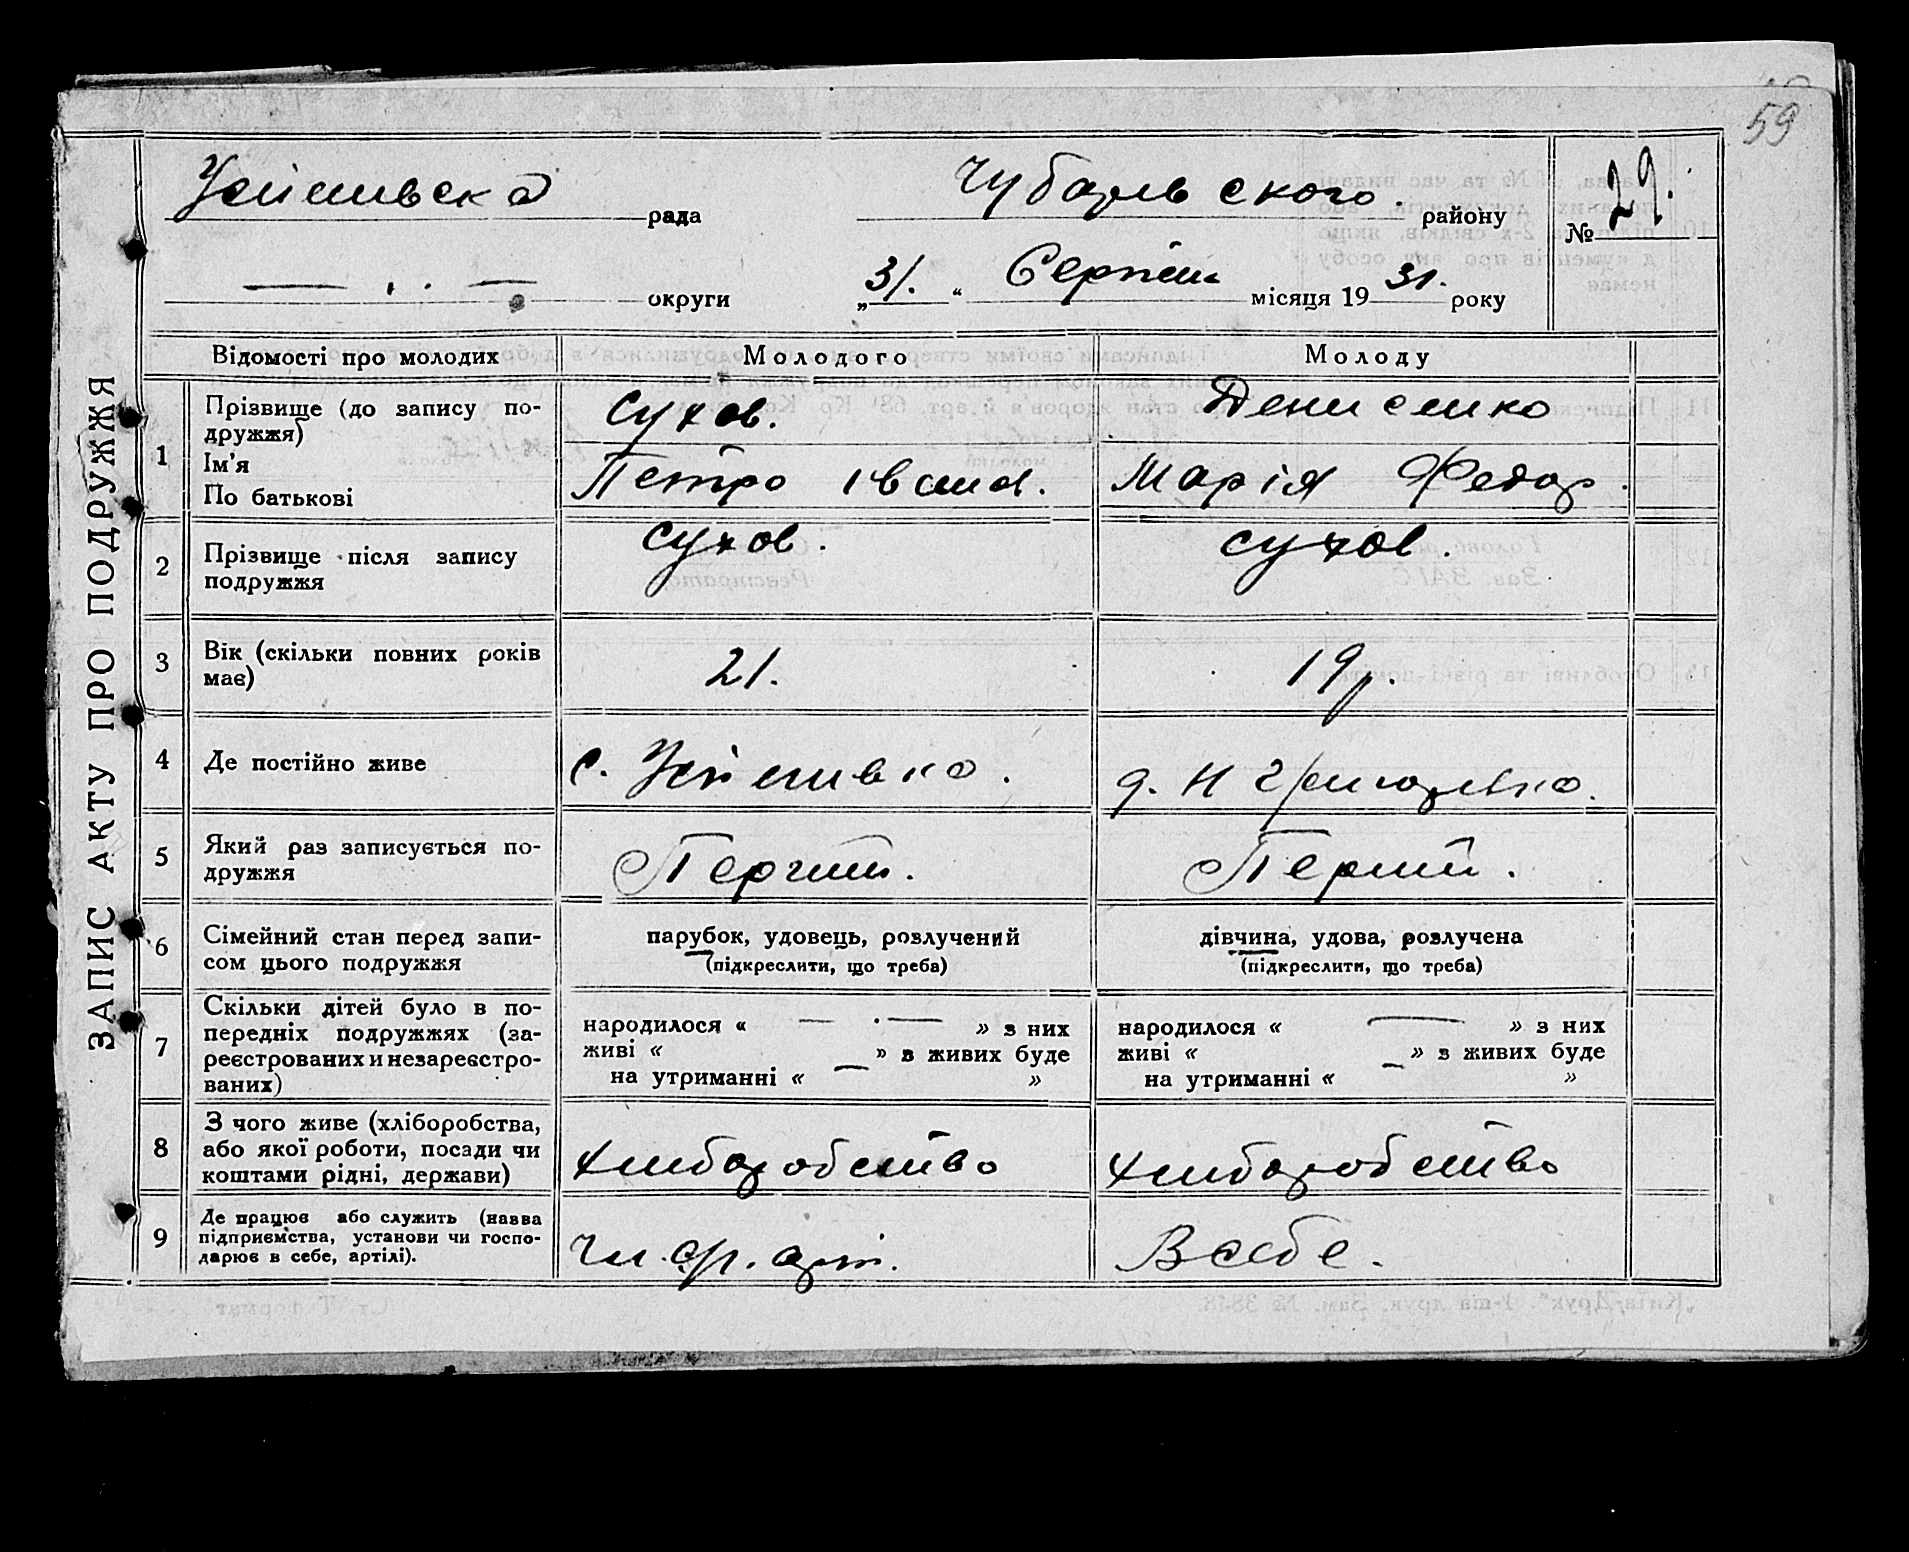 59
Успенівська рада
Чубарівського району
№ 29.
— . . — округи
„31.“ Серпня місяця 1931. року
ЗАПИС АКТУ ПРО ПОДРУЖЖЯ
Відомості про молодих
Молодого
Молоду
1
Прізвище (до запису по-
дружжя)
Ім'я
По батькові
Сухов.
Петро Іван.
Денисенко
Марія Федор.
2
Прізвище після запису
подружжя
Сухов.
Сухов.
3
Вік (скільки повних років
має)
21.
19р.
4
Де постійно живе
с. Успенівка.
5
Який раз записується по-
дружжя
Перший.
Перший.
6
Сімейний стан перед запи-
сом цього подружжя
парубок, удовець, розлучений
(підкреслити, що треба)
дівчина, удова, розлучена
(підкреслити, що треба)
7
Скільки дітей було в по-
передніх подружжях (за-
реєстрованих и незареєстро-
ваних)
народилося « — . — » з них
живі « — » з живих буде
на утриманні « »
народилося « — » з них
живі « — » з живих буде
на утриманні « »
8
З чого живе (хліборобства,
або якої роботи, посади чи
коштами рідні, держави)
Хліборобство
Хліборобство
9
Де працює або служить (назва
підприємства, установи чи госпо-
дарює в себе, артілі).
В себе.